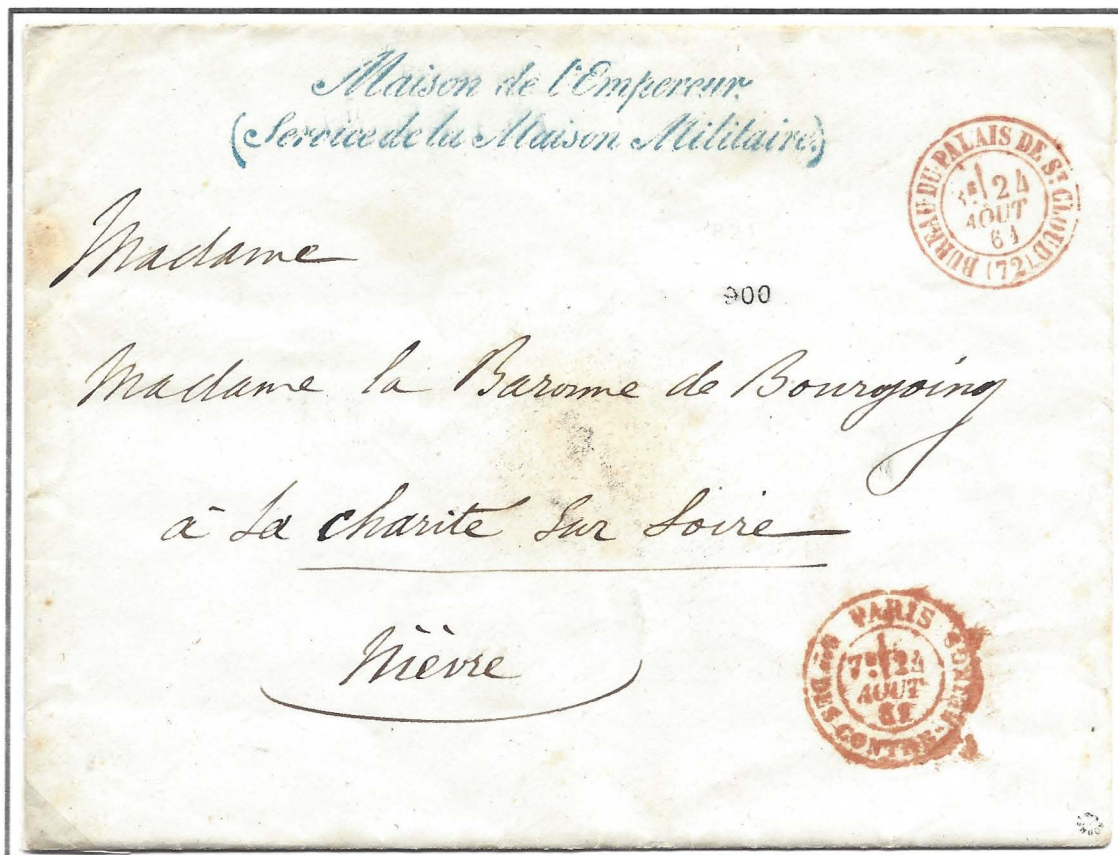 Maison de l'Empereur.
(Service de la Maison Militaire.)
BUREAU DU PALAIS DE ST CLOUD (72)
24
AOUT
61
Madame
900
Madame la Baronne de Bourgoing
à La Charité Sur Loire
Nièvre
PARIS
7E 24
AOUT
61